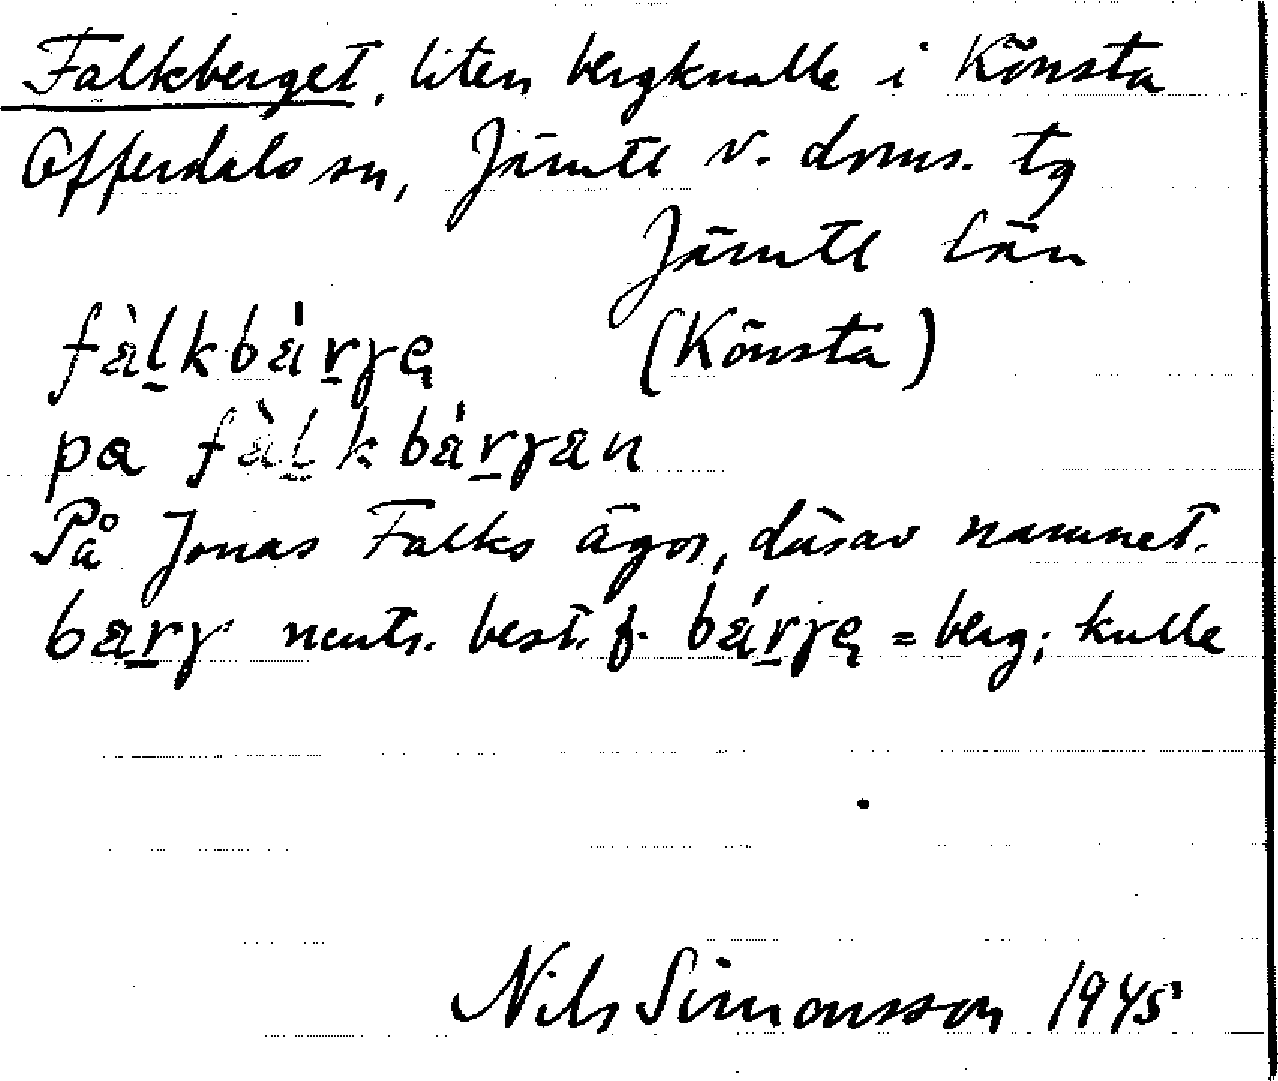 Falkberget, liten bergknalle i Könsta
Offerdals sn, Jämtl v. doms. tg
Jämtl Län
fàḻkbáṟγę (Könsta)
pa fàḻkbáṟγan
På Jonas Falks ägor, därav namnet.
baṟγ neutr. best. f. báṟγę = berg; kulle
Nils Simonsson 1945